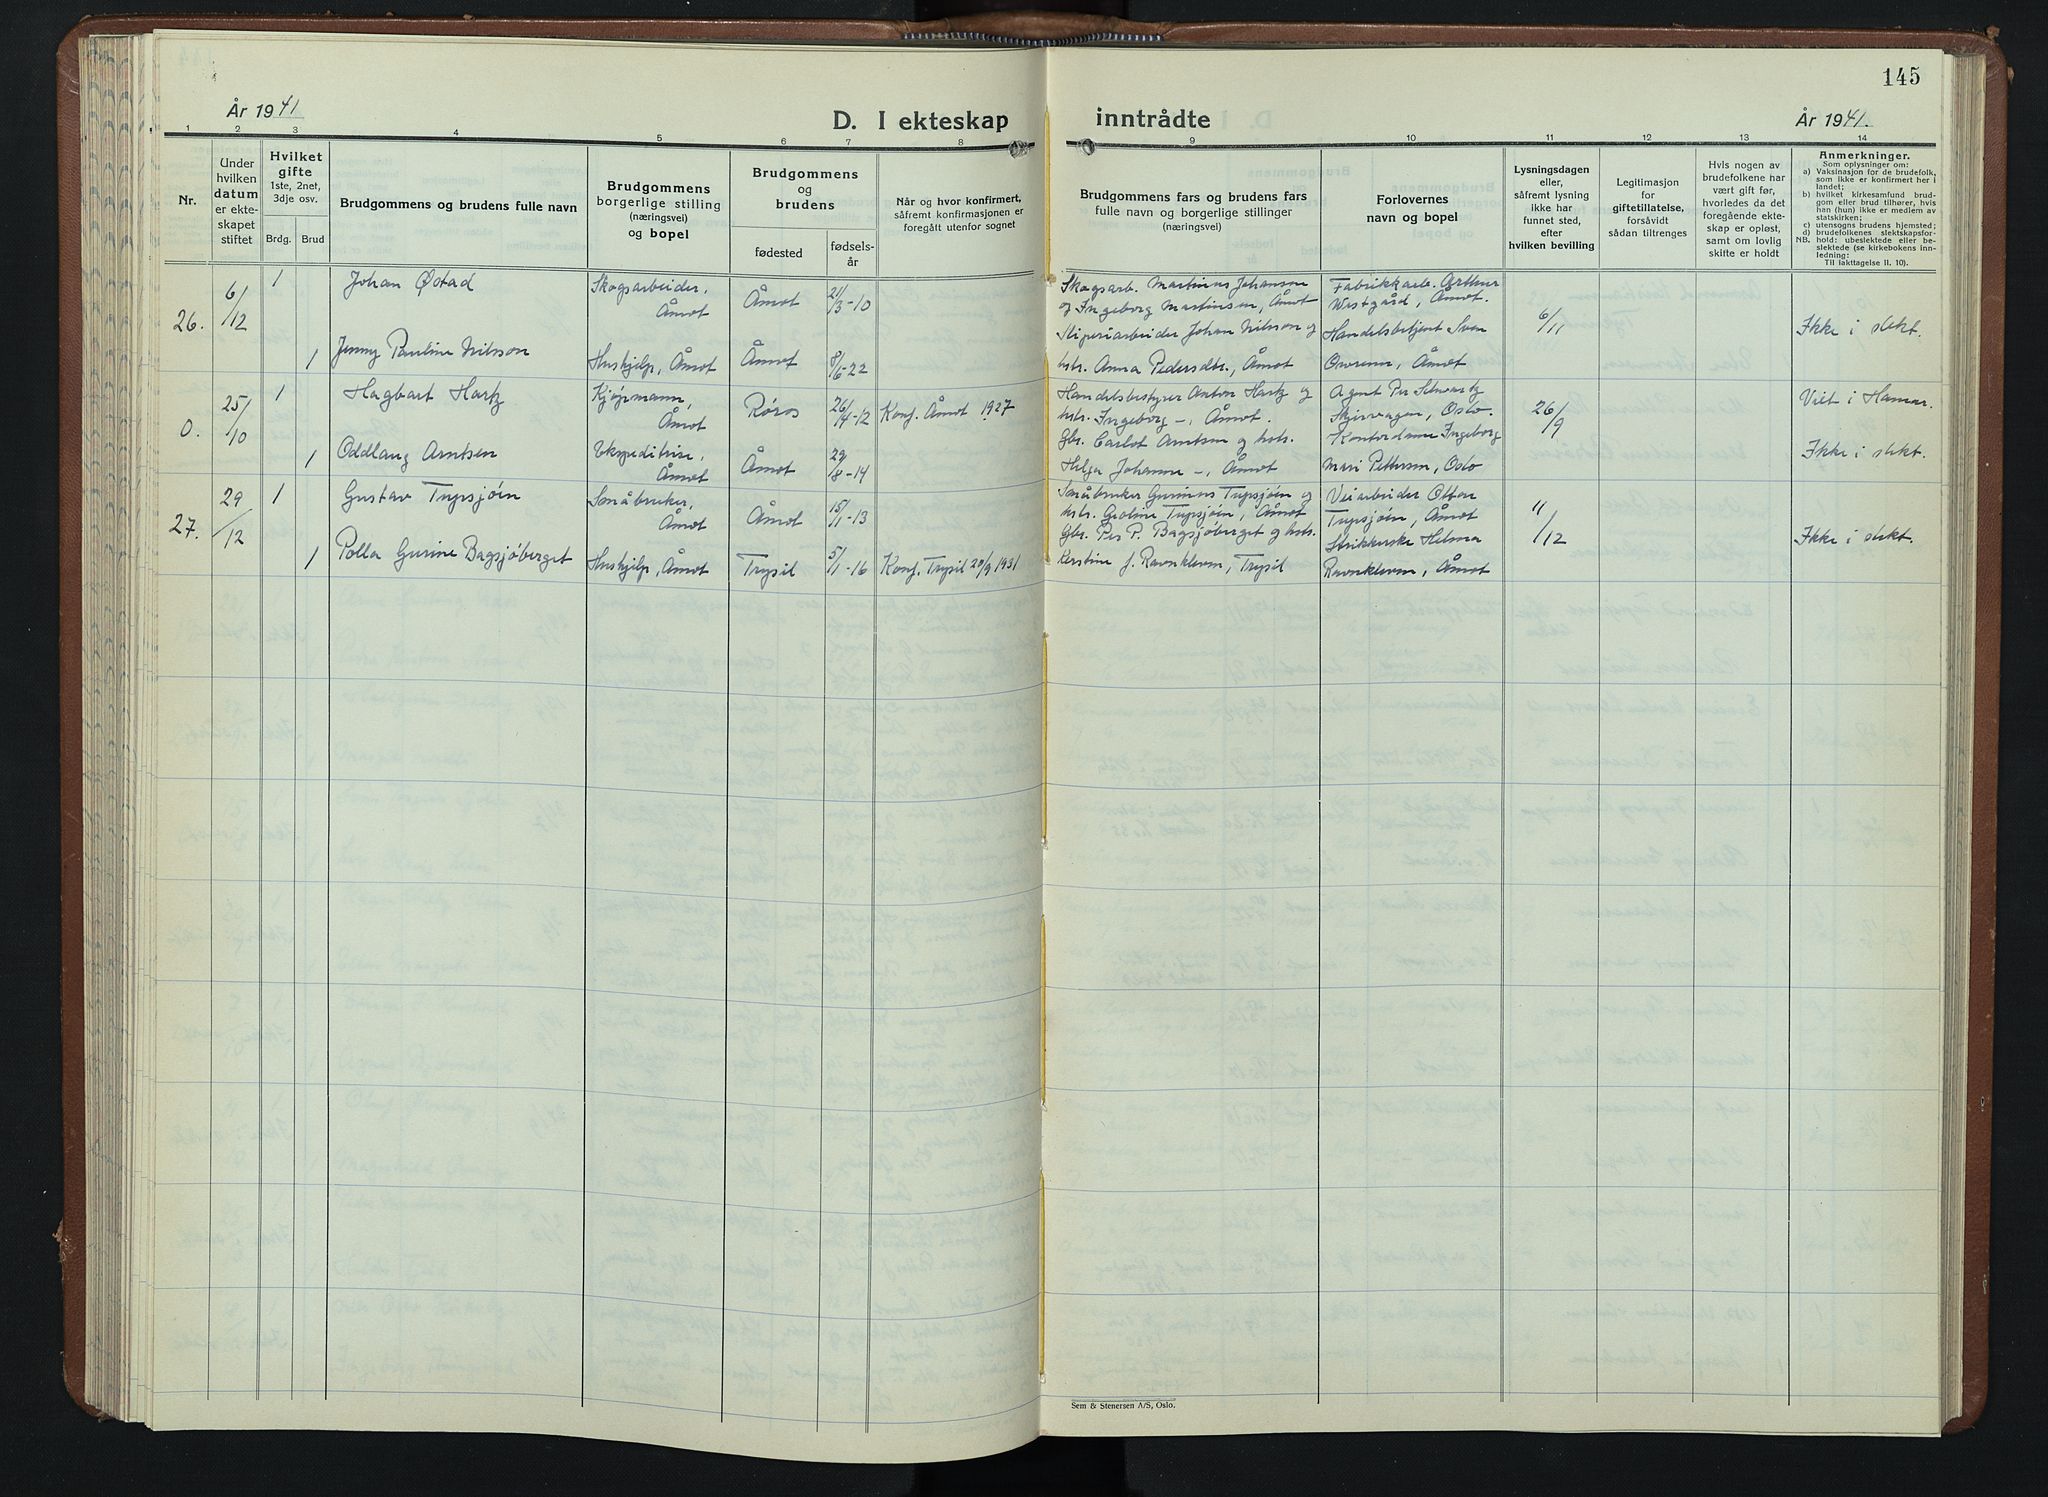 145
År 1941
D. I ekteskap inntrådte
År 1941.
1 2 3 4 5 6 7 8 9 10 11 12 13 14
Nr.
Under hvilken datum er ekteskapet stiftet
Hvilket gifte
1ste, 2net, 3dje osv.
Brdg. Brud
Brudgommens og brudens fulle navn
Brudgommens borgerlige stilling (næringsvei) og bopel
Brudgommens og brudens
fødested
fødselsår
Når og hvor konfirmert,
såfremt konfirmasjonen er
foregått utenfor sognet
Brudgommens fars og brudens fars
fulle navn og borgerlige stillinger
(næringsvei)
Forlovernes
navn og bopel
Lysningsdagen
eller,
såfremt lysning
ikke har
funnet sted,
efter
hvilken bevilling
Legitimasjon
for
giftetillatelse,
forsåvidt
sådan tiltrenges
Hvis nogen av
brudefolkene har
vært gift før,
hvorledes da det
foregående ekte-
skap er opløst,
samt om lovlig
skifte er holdt
Anmerkninger.
Som oplysninger om:
a) Vaksinasjon for de brudefolk,
som ikke er konfirmert her i
landet;
b) hvilket kirkesamfund brud-
gom eller brud tilhører, hvis
han (hun) ikke er medlem av
statskirken;
c) utensogns brudens hjemsted;
d) brudefolkenes slektskapsfor-
NB. hold: ubeslektede eller be-
slektede (se kirkebokens inn-
ledning:
Til iakttagelse II. 10).
26. 6/12 1 Johan Østad Skogsarbeider, Åmot Åmot 21/3-10
Skogsarb. Martinus Johansen
og Ingeborg Martinsen, Åmot
Fabrikkarb. Arthur
Westgård, Åmot.
6/11
Ikke i slekt.
1 Jenny Pauline Nilsson Hushjelp, Åmot Åmot 8/6-22
Sliperiarbeider Johan Nilsson og
hstr. Anna Pedersdtr., Åmot
Handelsbetjent Sven
Overenn, Åmot
0. 25/10 1 Hagbart Hartz Kjøpmann, Åmot Røros 26/4-12 Konf. Åmot 1927
Handelsbestyrer Anton Hartz og
hstr. Ingeborg —, Åmot.
Agent Per Schwartz
Skjervagen, Oslo.
26/9
Viet i Hamar.
1 Oddlaug Arntsen Ekspeditrise, Åmot Åmot 29/8-14
Gbr. Carlot Arntsen og hstr.
Helga Johanne —, Åmot
Kontordame Ingeborg
Mari Pettersen, Oslo
Ikke i slekt.
27. 29/12 1 Gustav Trypsjøin Småbruker, Åmot Åmot 15/1-13
Småbruker Gunnus Trypsjøin og
hstr. Goline Trypsjøin, Åmot
Veiarbeider Otton
Trypsjøin, Åmot
11/12
Ikke i slekt.
1 Polla Gurine Bagsjøberget Hushjelp, Åmot Trysil 5/1-16 Konf. Trysil 20/9 1931
Gbr. Per P. Bagsjøberget og hstr.
Kerstine J. Ravnkleven, Trysil
Strikkerske Helma
Ravnkleven, Åmot
Sem & Stenersen A/S, Oslo.